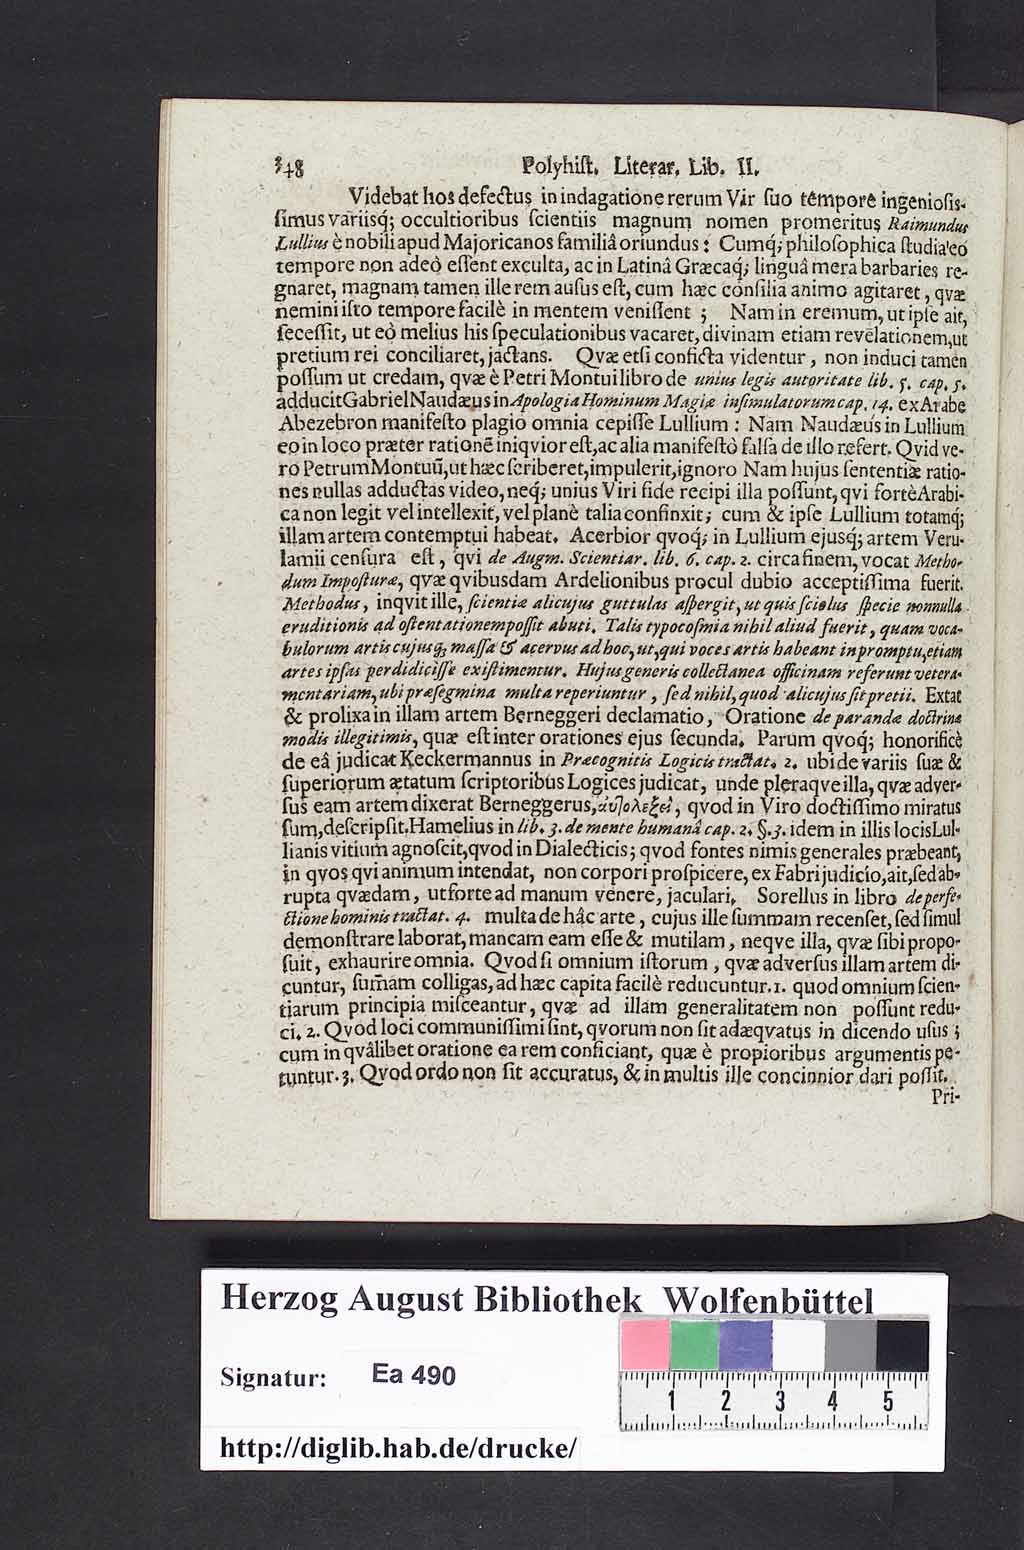 348 Polyhiſt. Literar. Lib. II.
Videbat hos defectus in indagatione rerum Vir ſuo tempore ingeniosis-
ſimus variisq́; occultioribus ſcientiis magnum nomen promeritus Raimundus
Lullius è nobili apud Majoricanos familiâ oriundus: Cumq́; philoſophica ſtudia eo
tempore non adeò eſſent exculta, ac in Latinâ Græcaq́; linguâ mera barbaries re-
gnaret, magnam tamen ille rem auſus eſt, cum hæc conſilia animo agitaret, qvæ
nemini iſto tempore facilè in mentem veniſſent; Nam in eremum, ut ipſe ait,
ſeceſſit, ut eò melius his ſpeculationibus vacaret, divinam etiam revelationem, ut
pretium rei conciliaret, jactans. Qvæ etſi conficta videntur, non induci tamen
poſſum ut credam, qvæ è Petri Montui libro de unius legis autoritate lib. 5. cap. 5.
adducit Gabriel Naudæus in Apologia Hominum Magiæ inſimulatorum cap. 14. ex Arabe
Abezebron manifeſto plagio omnia cepiſſe Lullium: Nam Naudæus in Lullium
eo in loco præter rationē iniqvior eſt, ac alia manifeſtò falſa de illo refert. Qvid ve-
rò Petrum Montuū, ut hæc ſcriberet, impulerit, ignoro Nam hujus ſententiæ ratio-
nes nullas adductas video, neq́; unius Viri fide recipi illa poſſunt, qvi fortè Arabi-
ca non legit vel intellexit, vel planè talia confinxit; cum & ipſe Lullium totamq́;
illam artem contemptui habeat. Acerbior qvoq́; in Lullium ejusq́; artem Veru-
lamii cenſura eſt, qvi de Augm. Scientiar. lib. 6. cap. 2. circa finem, vocat Metho-
dum Impoſturæ, qvæ qvibusdam Ardelionibus procul dubio acceptiſſima fuerit.
Methodus, inqvit ille, ſcientiæ alicujus guttulas aſpergit, ut quis ſciolus ſpecie nonnulla
eruditionis ad oſtentationem poſſit abuti. Talis typocoſmia nihil aliud fuerit, quam voca-
bulorum artis cujusq́; maſſa & acervus ad hoc, ut, qui voces artis habeant in promptu, etiam
artes ipſas perdidiciſſe exiſtimentur. Hujus generis collectanea officinam referunt vetera-
mentariam, ubi præſegmina multa reperiuntur, ſed nihil, quod alicujus ſit pretii. Extat
& prolixa in illam artem Berneggeri declamatio, Oratione de parandæ doctrinæ
modis illegitimis, quæ eſt inter orationes ejus ſecunda. Parum qvoq́; honorificè
de eâ judicat Keckermannus in Præcognitis Logicis tractat. 2. ubi de variis ſuæ &
ſuperiorum ætatum ſcriptoribus Logices judicat, unde pleraqve illa, qvæ adver-
ſus eam artem dixerat Berneggerus, αὐτολεξεὶ, qvod in Viro doctiſſimo miratus
ſum, deſcripſit. Hamelius in lib. 3. de mente humanâ cap. 2. §. 3. idem in illis locis Lul-
lianis vitium agnoſcit, qvod in Dialecticis; qvod fontes nimis generales præbeant,
in qvos qvi animum intendat, non corpori proſpicere, ex Fabri judicio, ait, ſed ab-
rupta qvædam, ut forte ad manum venere, jaculari. Sorellus in libro de perfe-
ctione hominis tractat. 4. multa de hâc arte, cujus ille ſummam recenſet, ſed ſimul
demonſtrare laborat, mancam eam eſſe & mutilam, neqve illa, qvæ ſibi propo-
ſuit, exhaurire omnia. Qvod ſi omnium iſtorum, qvæ adverſus illam artem di-
cuntur, ſum̄am colligas, ad hæc capita facilè reducuntur. 1. quod omnium ſcien-
tiarum principia miſceantur, qvæ ad illam generalitatem non poſſunt redu-
ci. 2. Qvod loci communiſſimi ſint, qvorum non ſit adæqvatus in dicendo uſus;
cum in qvâlibet oratione ea rem conficiant, quæ è propioribus argumentis pe-
tuntur. 3. Qvod ordo non ſit accuratus, & in multis ille concinnior dari poſſit.
Pri-
Herzog August Bibliothek Wolfenbüttel
Signatur: Ea 490
1 2 3 4 5
http://diglib.hab.de/drucke/